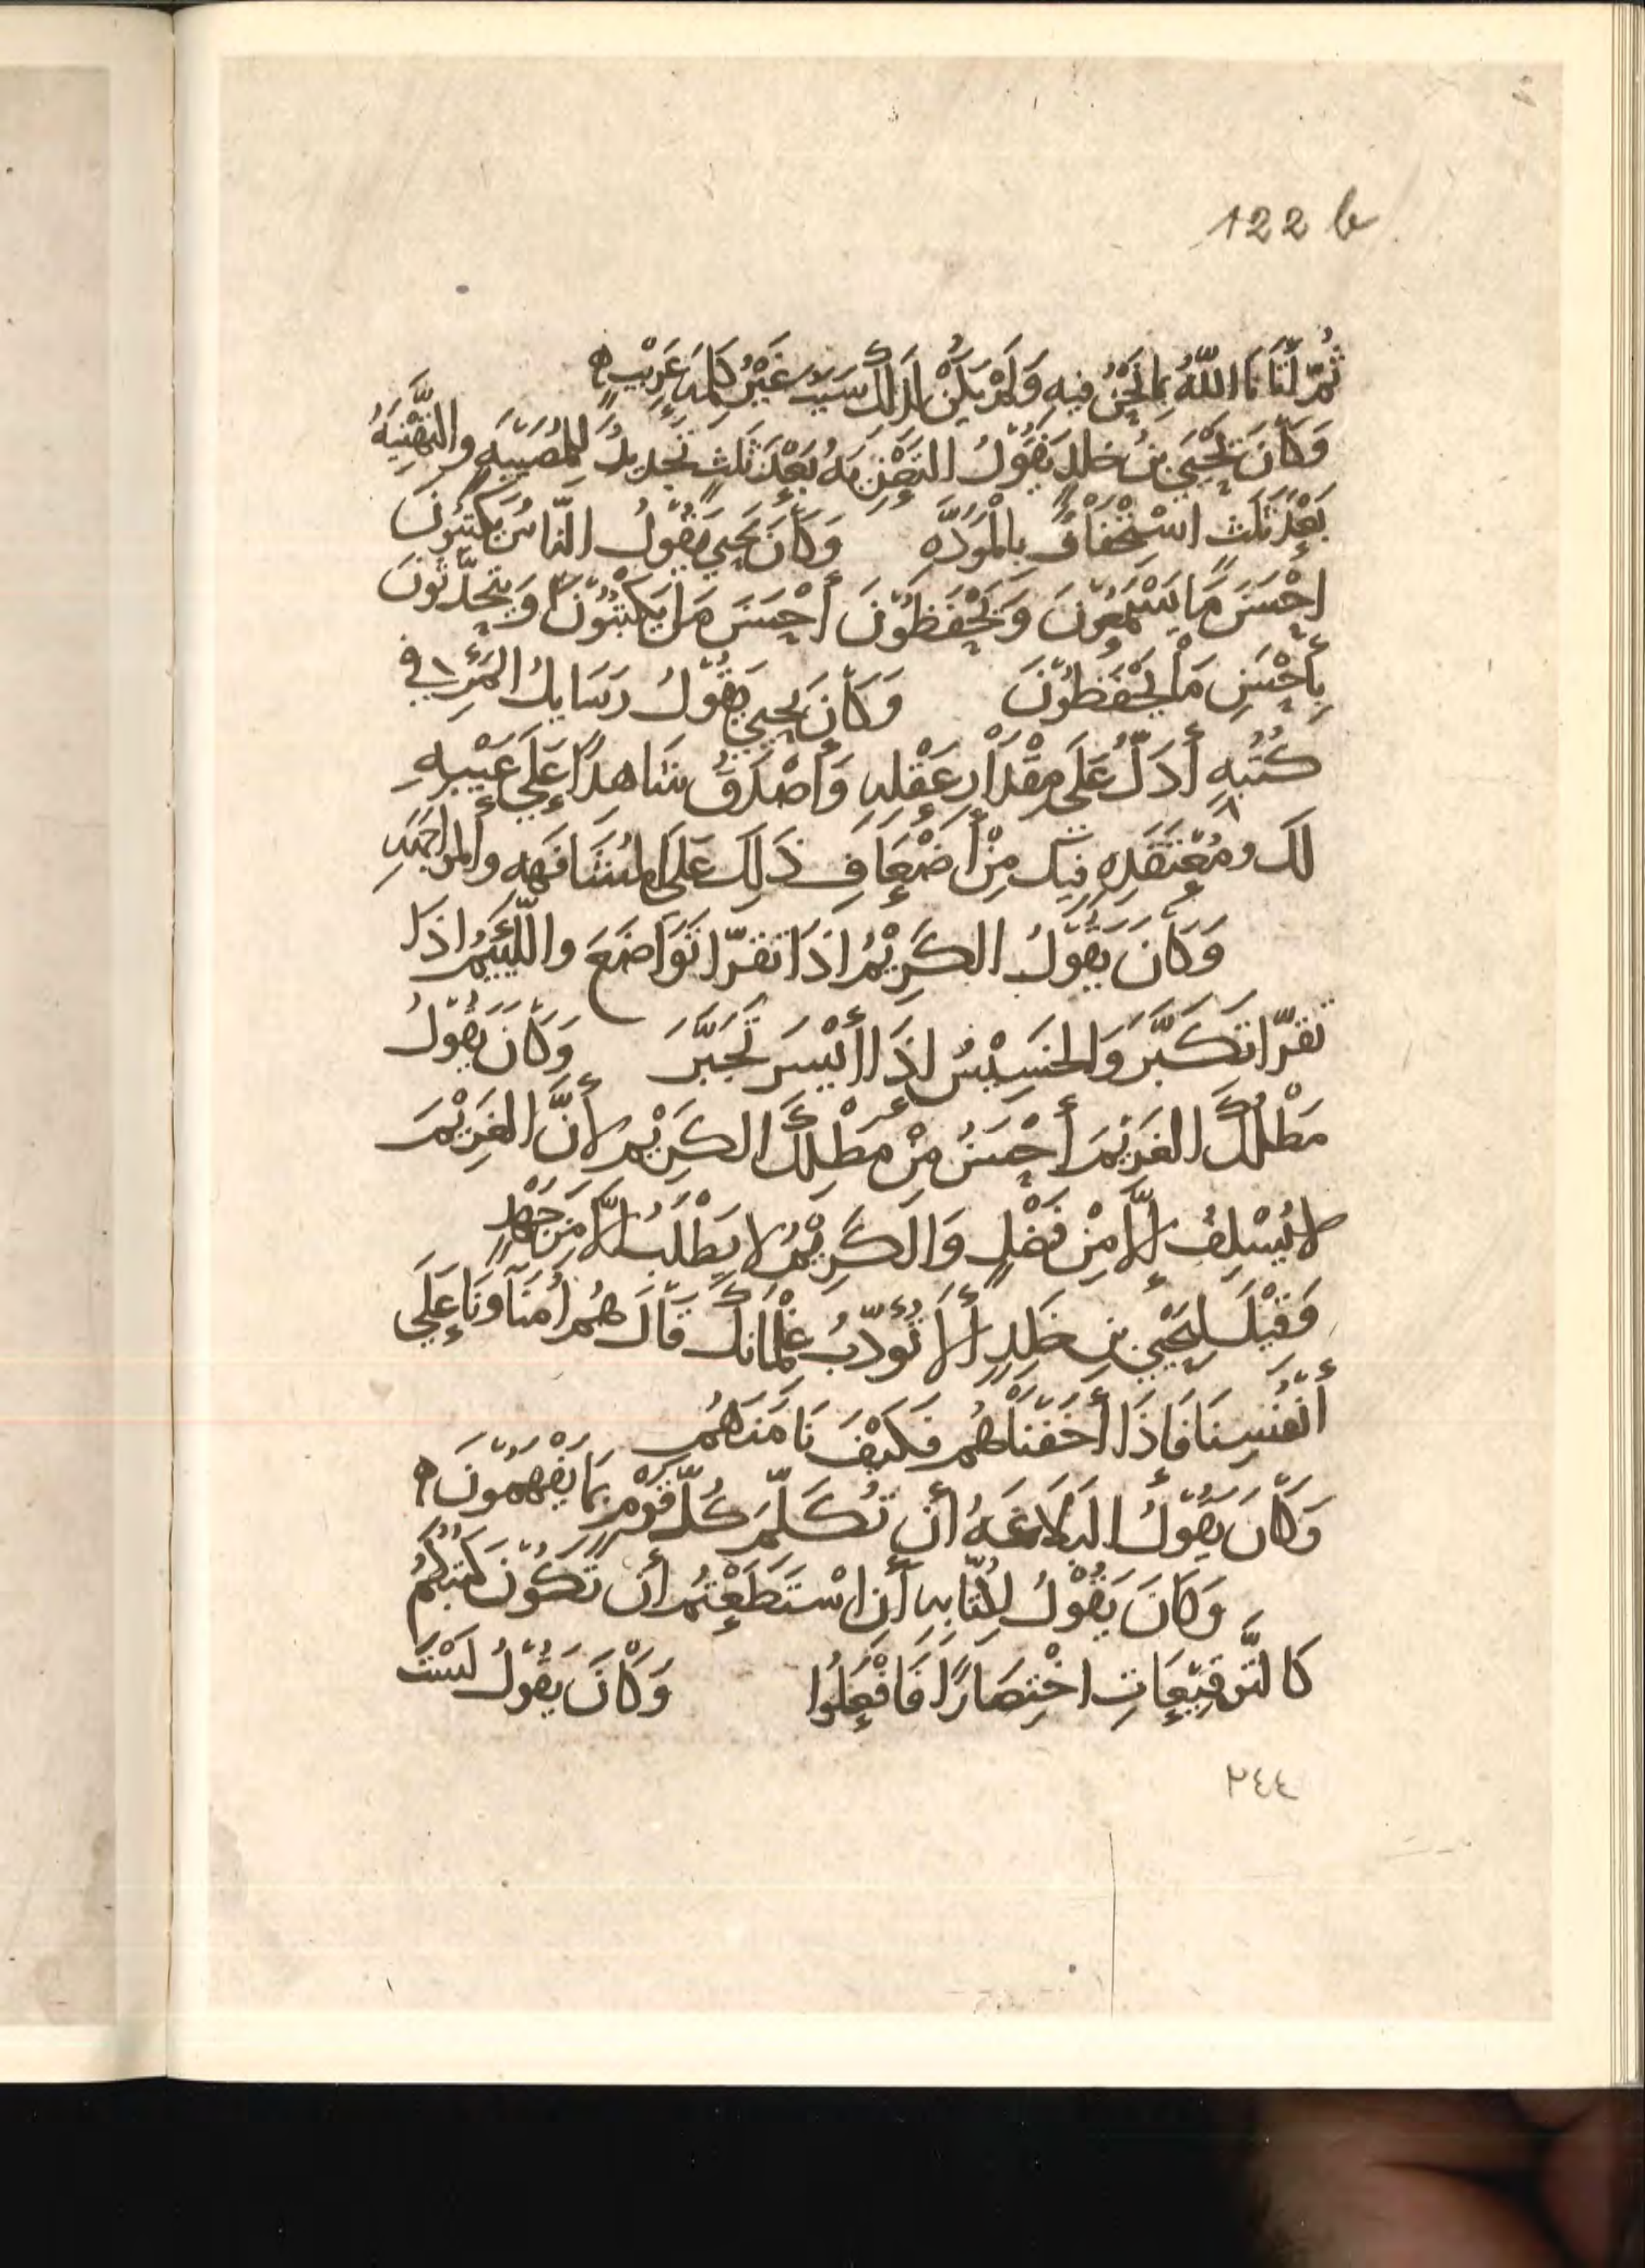 122 b
ثُمَّ أَتَانَا اللّهُ بِمَا نَحْنُ فِيهِ وَلَمْ يَكُنْ لِذَلِكَ سَبَب غَيْرُ كَلِمَة عَرِيْبٍ ه
وَكَانَ يَحْيَى بنُ خلدٍ يَقُولُ التَعْزِيَهُ بَعْدَ ثَلثٍ تَجْدِيدٌ لِلْمُصِيْبَهِ والتَّهْنِيَهُ
بَعْدَ ثَلثٍ اسْتِخْفَافٌ بِالْمَوَدَّهِ وَكَانَ يَحيي يَقُولُ النّاسُ يَكْتُبُونَ
احْسَنَ مَا يَسْمَعُونَ وَيَحْفَظُونَ أَحْسَنَ مَا يَكْتُبُونَ وَيَتَحَدَّثُونَ
بِأَحْسَنِ مَا يَحْفَظُونَ وَكَانَ يَحيي يَقُولُ رَسَايِلُ المَرْءِ في
كُتُبِهِ أَدَلُّ عَلَى مِقْدَارِ عَقْلِهِ وَأَصْدَقُ شَاهِدًا عَلَى عَيْبِهِ
لَكَ ومُعْتَقَدِهِ فِيكَ مِنْ أَضْعَافِ ذَلِكَ عَلَى المُشَافَهِهِ والمُوَاجَهَهِ
وَكَانَ يَقُولُ الكَرِيْمُ اذَا تَقَرّا تَوَاضَعَ واللَّئِيمُ اذَا
تَقَرّا تَكَبَّرَ وَالخَسِيْسُ إذَا أَيْسَرَ تَجَبَّرَ وَكَانَ يَقُولُ
مَطْلُكَ الغَرِيْمَ أَحْسَنُ مِنْ مَطْلِكَ الكَرِيْمَ لأَنَّ الغَرِيْمَ
لا يُسْلِفُ إلَّا مِنْ فَضْلٍ وَالكَرِيْمُ لا يَطْلُبُ إلَّا مِنْ جَهْدٍ
وَقِيْلَ لِيَحْيَي بنِ خَلِدٍ أَلا تُؤَدّبُ غِلْمَانَكَ قَالَ هُم أُمَنَاؤنَا عَلَى
أَنْفُسِنَا فَاذَا أَخَفْنَاهُم فَكَيْفَ نَامَنهُم
وَكَانَ يَقُولُ البَلاغَهُ أَن تُكَلِّمَ كُلَّ قَوْمٍ بِمَا يَفْهَمُونَ ه
وَكَانَ يَقُوْلُ لِكُتّابِهِ أَنِ اسْتَطَعْتُم أَن تَكُونَ كُتُبُكُمْ
كَالتَّوقِيْعَاتِ اخْتِصَارًا فَافْعَلُوا وَكَانَ يَقُولُ لَسْتَ
٢٤٤